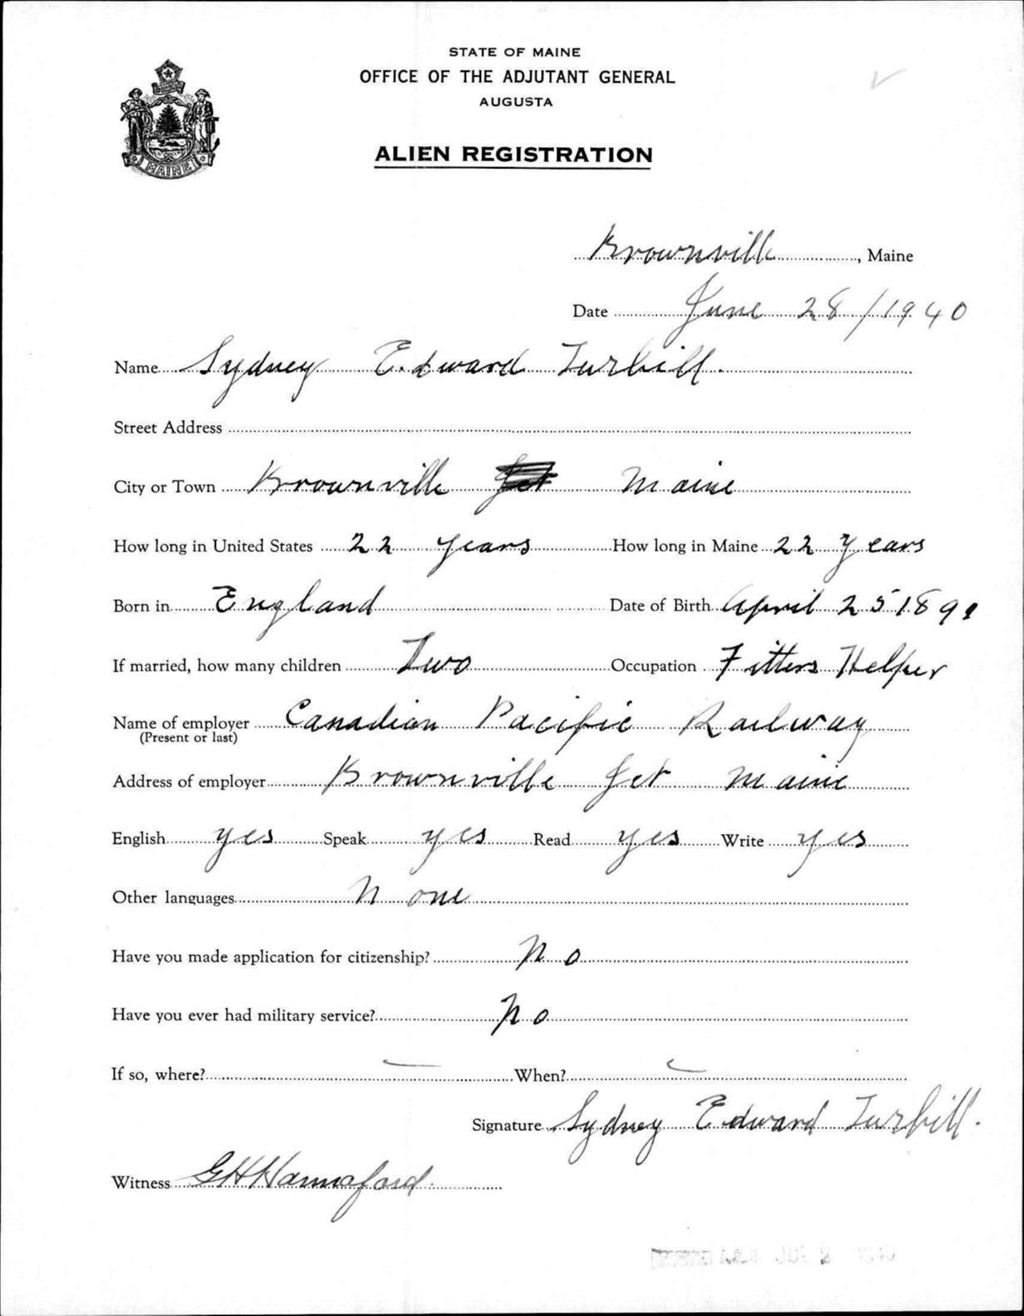 STATE OF MAINE
OFFICE OF THE ADJUTANT GENERAL
AUGUSTA
ALIEN REGISTRATION
MAINE
Brownville, Maine
Date June 28/1940
Name Sydney Edward Turbill.
Street Address
City or Town Brownville Jct Maine
How long in United States 22 years How long in Maine 22 years
Born in England Date of Birth April 25 1891
If married, how many children Two Occupation Fitters Helper
Name of employer Canadian Pacific Railway
(Present or last)
Address of employer Brownville Jct Maine
English yes Speak yes Read yes Write yes
Other languages None
Have you made application for citizenship? No
Have you ever had military service? No
If so, where? When?
Signature Sydney Edward Turbill.
Witness G H Hannaford.